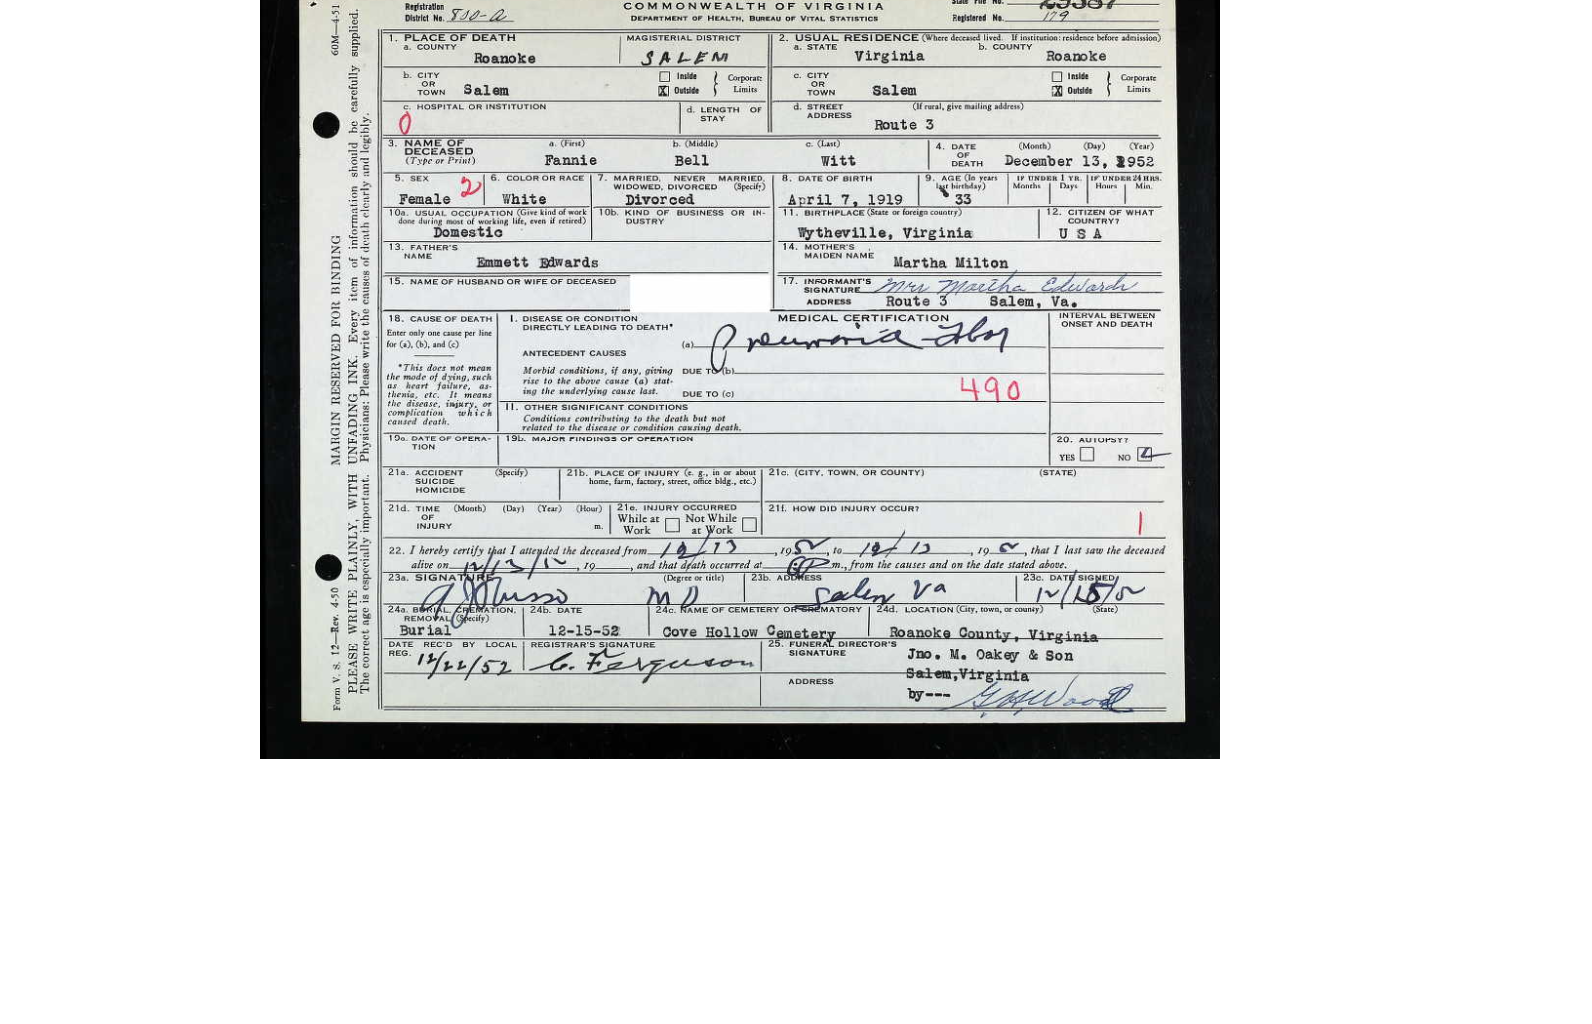 Registration
District No. 800-A
COMMONWEALTH OF VIRGINIA
DEPARTMENT OF HEALTH, BUREAU OF VITAL STATISTICS
State File No.
Registered No. 179
1. PLACE OF DEATH
a. COUNTY
Roanoke
MAGISTERIAL DISTRICT
SALEM
2. USUAL RESIDENCE (Where deceased lived. If institution: residence before admission)
a. STATE
Virginia
b. COUNTY
Roanoke
b. CITY OR TOWN Salem
Inside
X Outside
Corporate Limits
c. CITY OR TOWN Salem
Inside
X Outside
Corporate Limits
c. HOSPITAL OR INSTITUTION
0
d. LENGTH OF STAY
d. STREET ADDRESS (If rural, give mailing address)
Route 3
3. NAME OF DECEASED (Type or Print)
a. (First)
Fannie
b. (Middle)
Bell
c. (Last)
Witt
4. DATE OF DEATH
(Month) (Day) (Year)
December 13, 1952
5. SEX
Female 2
6. COLOR OR RACE
White
7. MARRIED, NEVER MARRIED, WIDOWED, DIVORCED (Specify)
Divorced
8. DATE OF BIRTH
April 7, 1919
9. AGE (In years last birthday)
33
IF UNDER 1 YR.
Months Days
IF UNDER 24 HRS.
Hours Min.
10a. USUAL OCCUPATION (Give kind of work done during most of working life, even if retired)
Domestic
10b. KIND OF BUSINESS OR INDUSTRY
11. BIRTHPLACE (State or foreign country)
Wytheville, Virginia
12. CITIZEN OF WHAT COUNTRY?
U S A
13. FATHER'S NAME
Emmett Edwards
14. MOTHER'S MAIDEN NAME
Martha Milton
15. NAME OF HUSBAND OR WIFE OF DECEASED
17. INFORMANT'S SIGNATURE Mrs Martha Edwards
ADDRESS Route 3 Salem, Va.
18. CAUSE OF DEATH
Enter only one cause per line for (a), (b), and (c)
*This does not mean the mode of dying, such as heart failure, asthenia, etc. It means the disease, injury, or complication which caused death.
MEDICAL CERTIFICATION
INTERVAL BETWEEN ONSET AND DEATH
I. DISEASE OR CONDITION DIRECTLY LEADING TO DEATH*
(a) Pneumonia
ANTECEDENT CAUSES
Morbid conditions, if any, giving rise to the above cause (a) stating the underlying cause last.
DUE TO (b)
DUE TO (c)
490
II. OTHER SIGNIFICANT CONDITIONS
Conditions contributing to the death but not related to the disease or condition causing death.
19a. DATE OF OPERATION
19b. MAJOR FINDINGS OF OPERATION
20. AUTOPSY?
YES NO
21a. ACCIDENT SUICIDE HOMICIDE (Specify)
21b. PLACE OF INJURY (e. g., in or about home, farm, factory, street, office bldg., etc.)
21c. (CITY, TOWN, OR COUNTY) (STATE)
21d. TIME OF INJURY (Month) (Day) (Year) (Hour) m.
21e. INJURY OCCURRED
While at Work Not While at Work
21f. HOW DID INJURY OCCUR?
1
22. I hereby certify that I attended the deceased from 12/13, 1952, to 12/13, 195, that I last saw the deceased
alive on 12/13/52, 19, and that death occurred at m., from the causes and on the date stated above.
23a. SIGNATURE (Degree or title)
Russo MD
23b. ADDRESS
Salem Va
23c. DATE SIGNED
12/15/52
24a. BURIAL, CREMATION, REMOVAL (Specify)
Burial
24b. DATE
12-15-52
24c. NAME OF CEMETERY OR CREMATORY
Cove Hollow Cemetery
24d. LOCATION (City, town, or county) (State)
Roanoke County, Virginia
DATE REC'D BY LOCAL REG.
12/22/52
REGISTRAR'S SIGNATURE
C. Ferguson
25. FUNERAL DIRECTOR'S SIGNATURE
Jno. M. Oakey & Son
ADDRESS
Salem,Virginia
by---
Form V. S. 12—Rev. 4-50 MARGIN RESERVED FOR BINDING 60M—4-51
PLEASE WRITE PLAINLY, WITH UNFADING INK. Every item of information should be carefully supplied.
The correct age is especially important. Physicians: Please write the causes of death clearly and legibly.